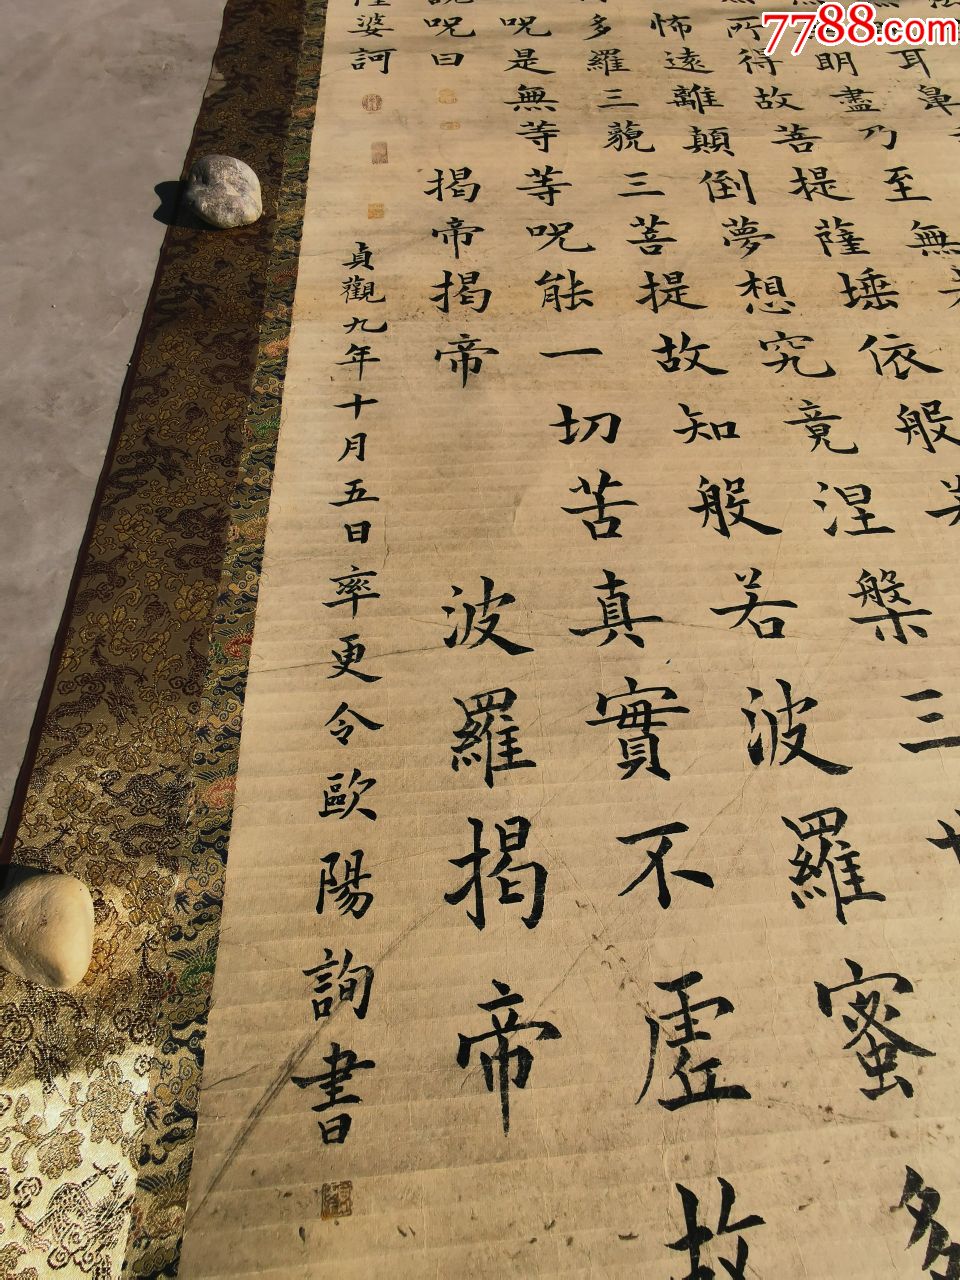 耳鼻
明盡乃至無
無所得故菩提薩埵依般若
怖遠離顛倒夢想究竟涅槃三世
多羅三藐三菩提故知般若波羅蜜多
呪是無等等呪能一切苦真實不虛故
說呪曰揭帝揭帝波羅揭帝
婆訶
貞觀九年十月五日率更令歐陽詢書
7788.com